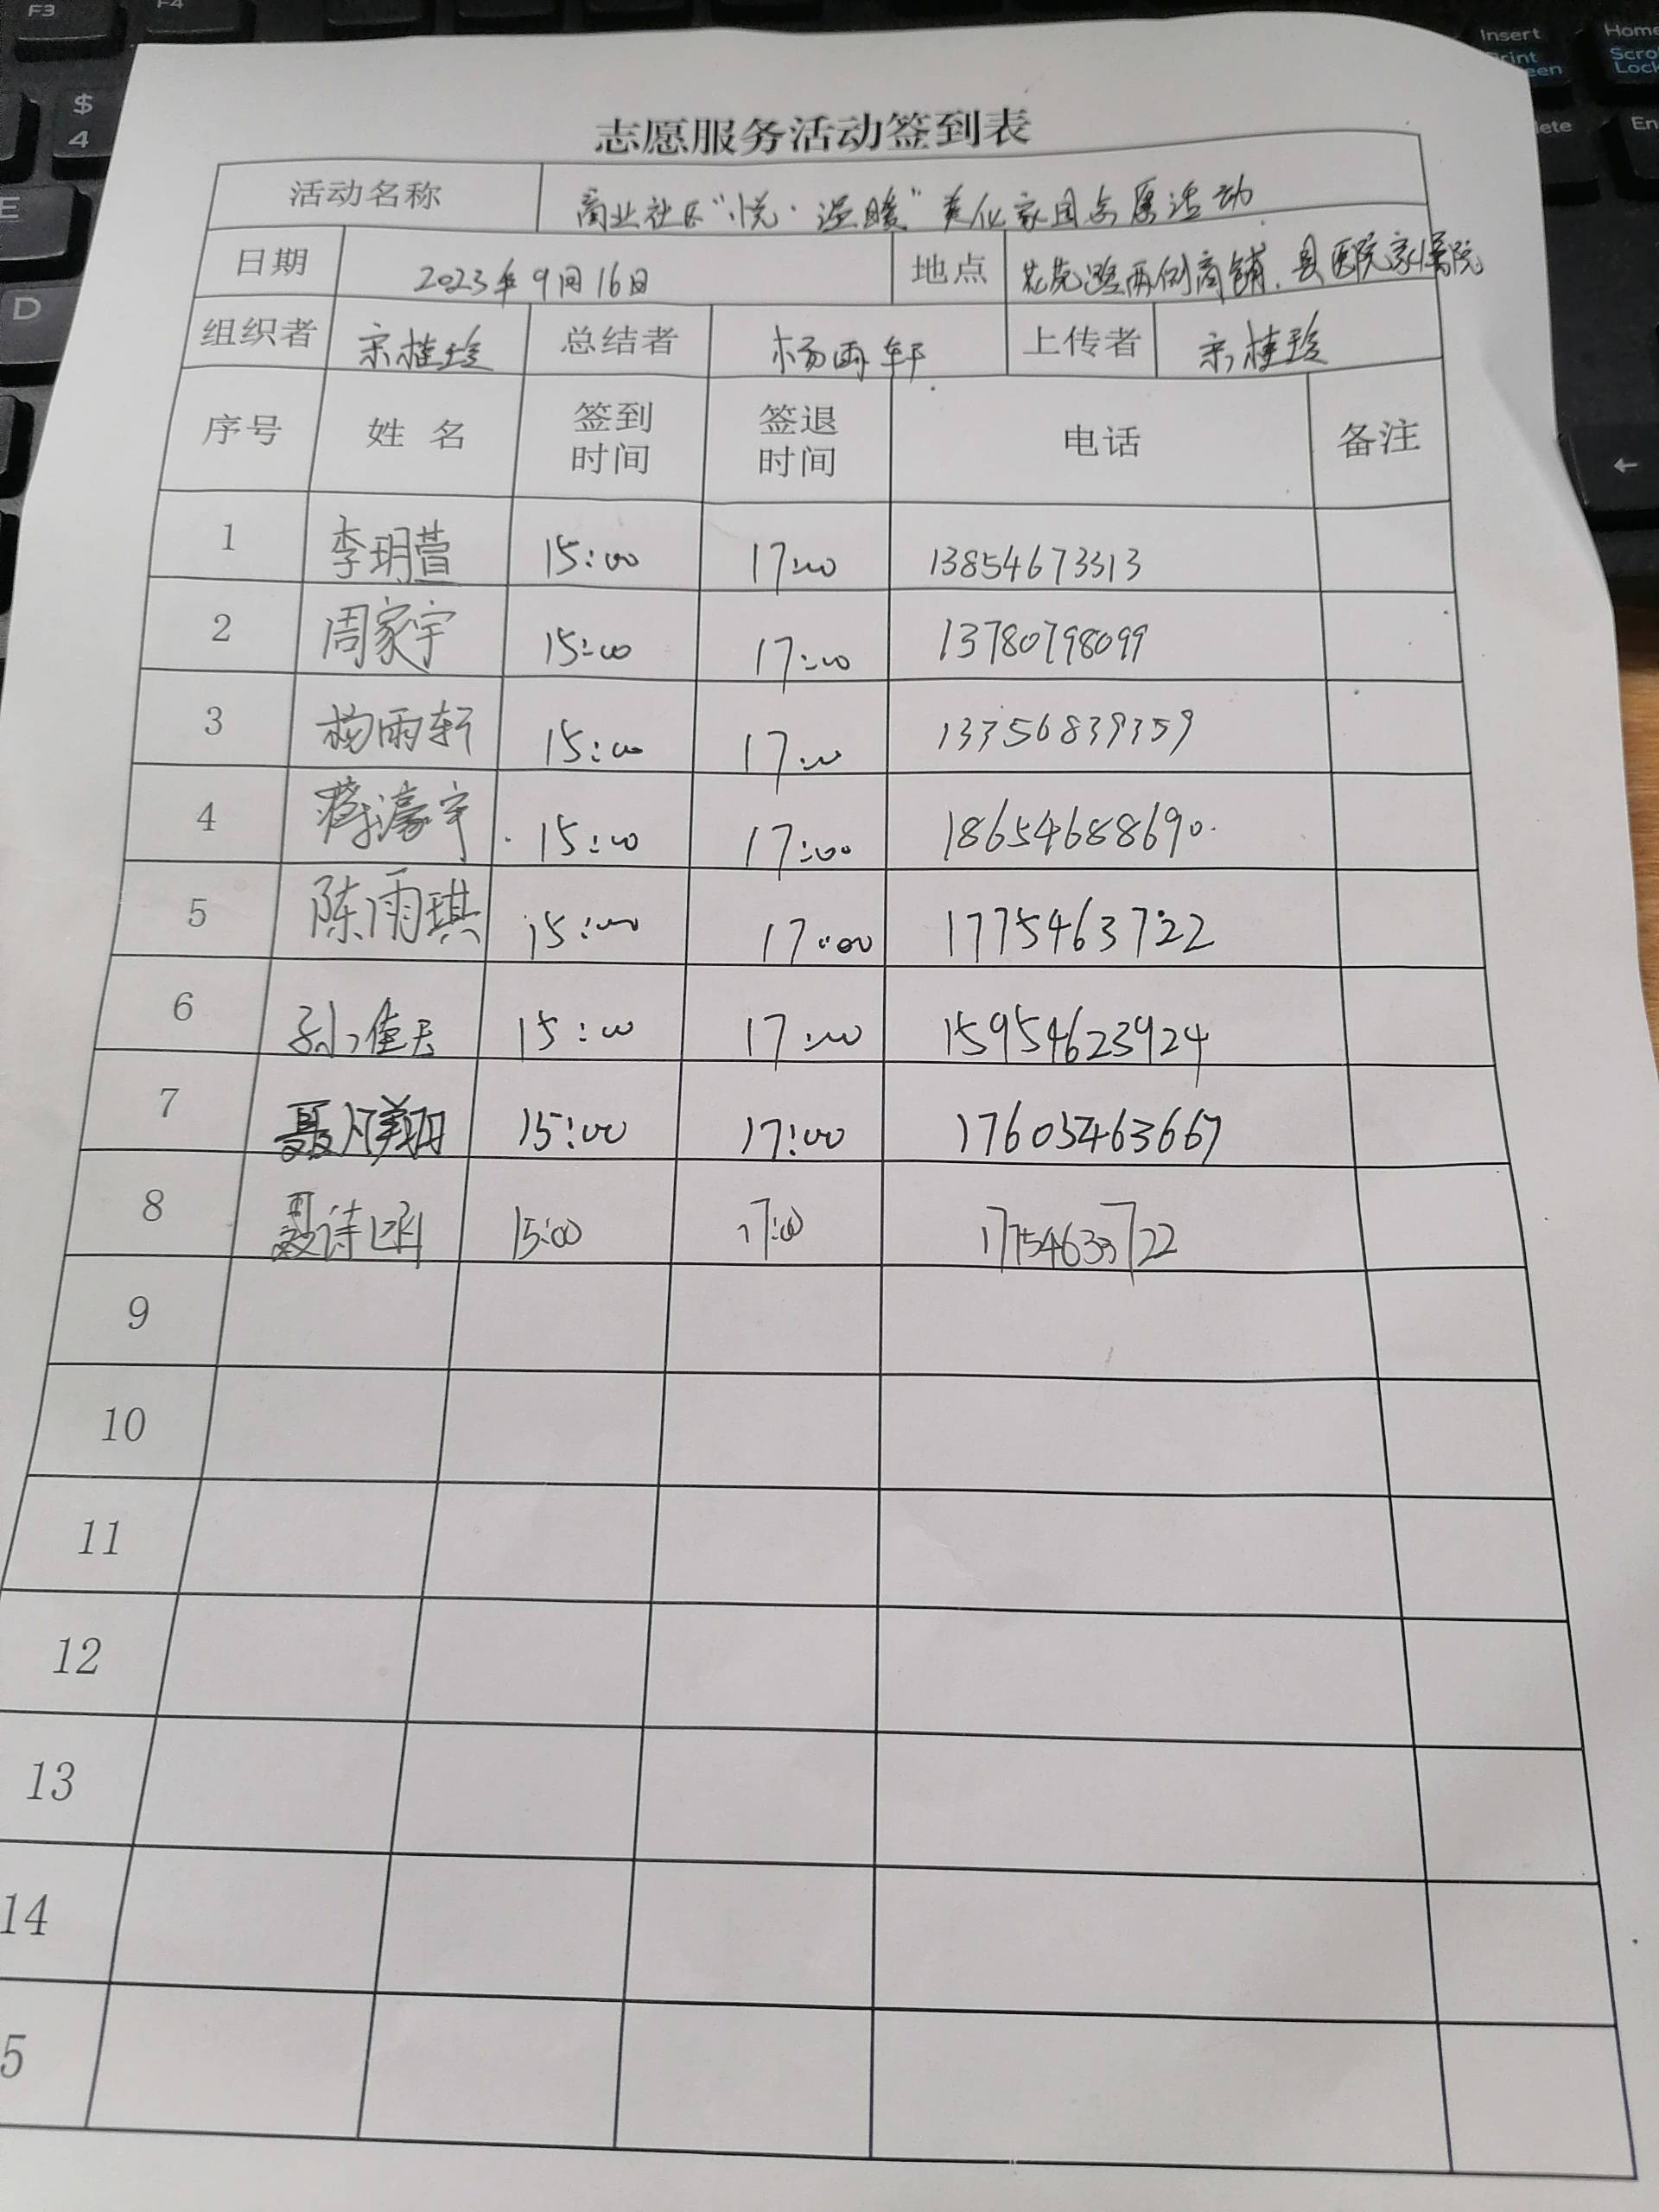 志愿服务活动签到表
活动名称 商业社区“悦·温暖”美化家园志愿活动
日期 2023年9月16日 地点 花苑路两侧商铺、县医院家属院
组织者 宋桂珍 总结者 杨雨轩 上传者 宋桂珍
序号 姓名 签到时间 签退时间 电话 备注
1 李玥萱 15:00 17:00 13854673313
2 周家宇 15:00 17:00 13780798099
3 杨雨轩 15:00 17:00 13356839359
4 蒋濠宇 15:00 17:00 18654688690
5 陈雨琪 15:00 17:00 1775463722
6 孙佳 15:00 17:00 15954623924
7 聂 翔 15:00 17:00 17605463667
8 聂诗涵 15:00 17:00 17754633722
9
10
11
12
13
14
5
F3
F4
$
4
E
D
Insert
Home